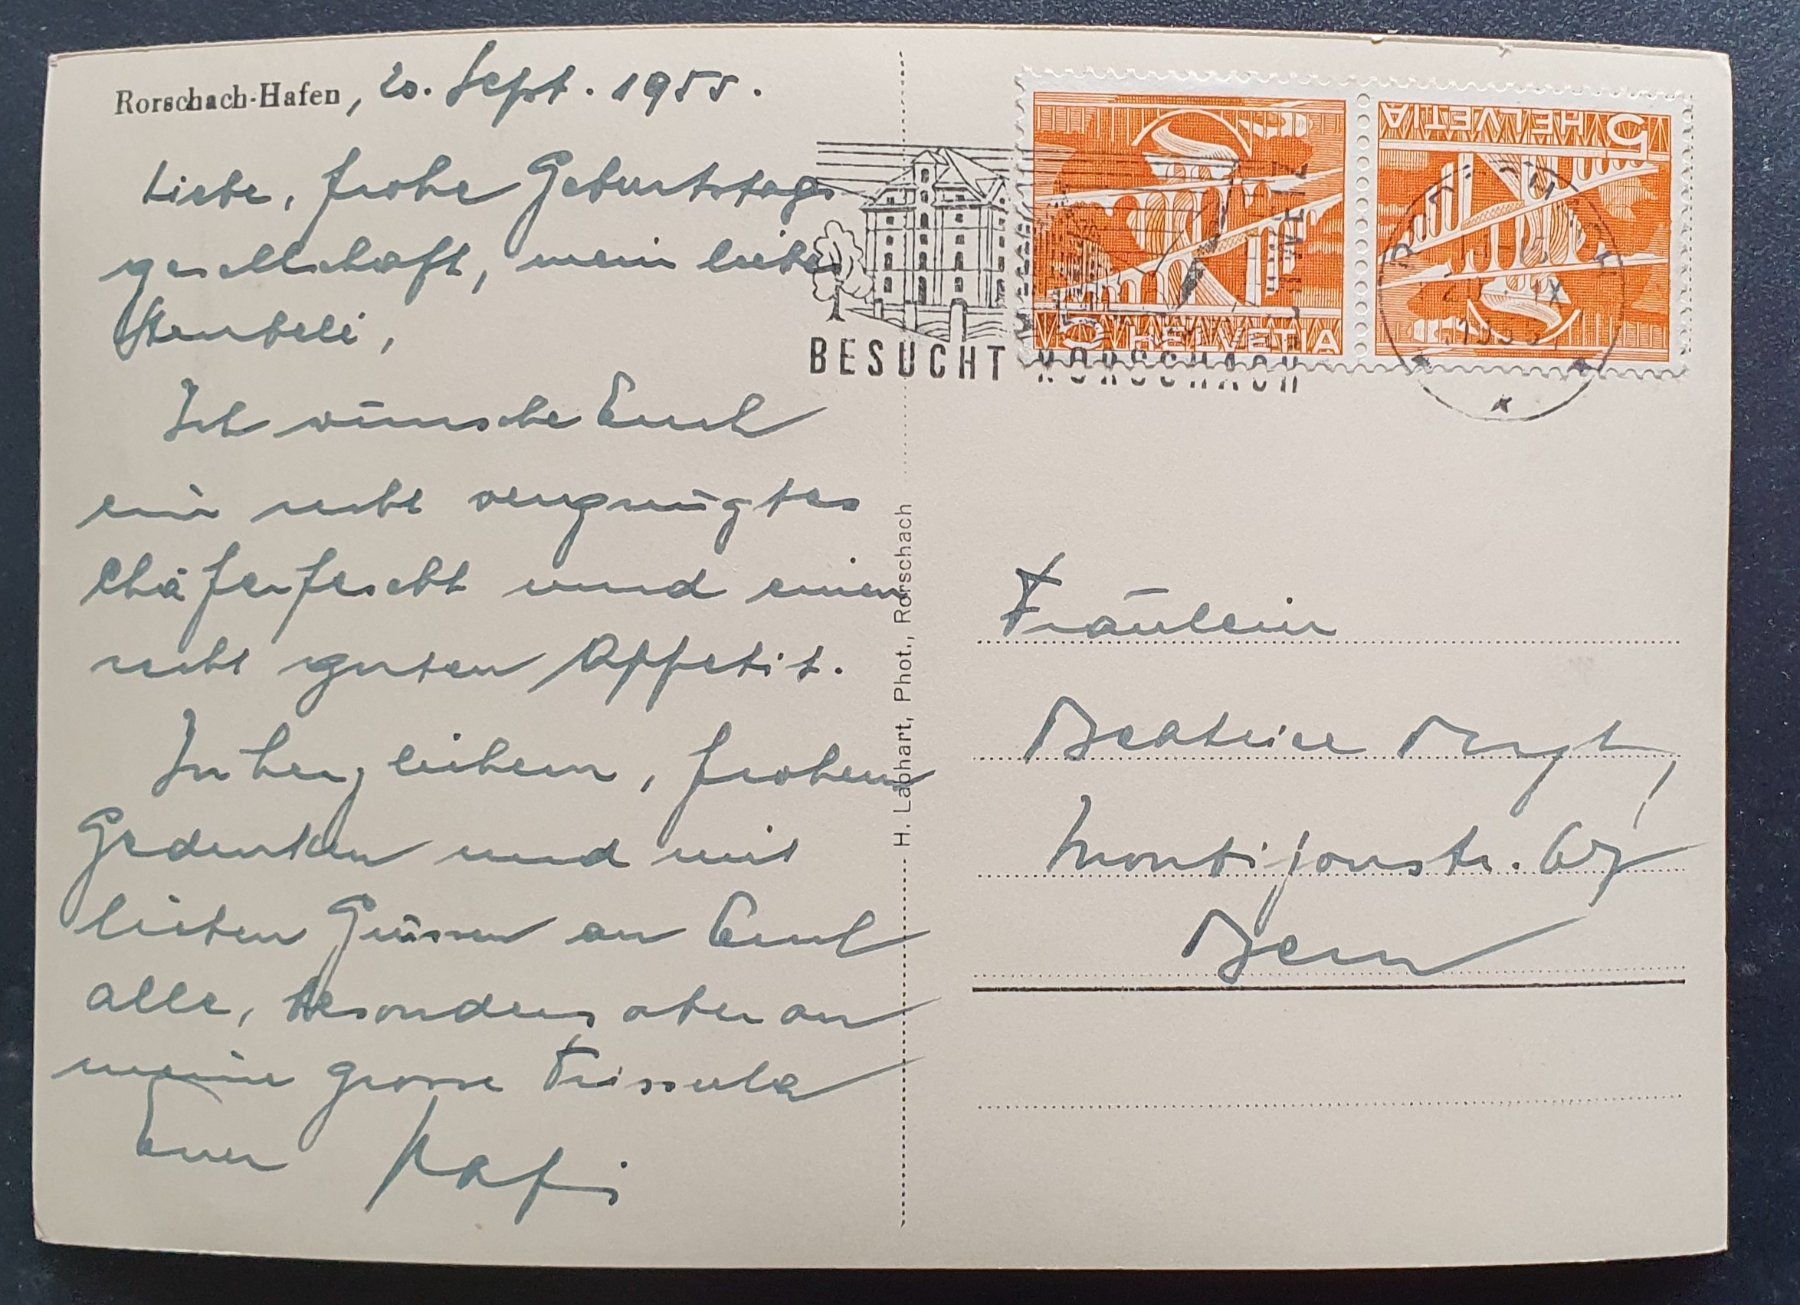 Rorschach-Hafen, 20. Sept. 1955.
Liebe, frohe Geburtstags
gesellschaft, mein liebes
Ich wünsche Euch
ein recht vergnügtes
Chäferfescht und einen
recht guten Appetit.
In herzlichem, frohem
Gedenken und mit
lieben Grüssen an Euch
alle, besonders aber an
meine grosse
Euer Papi
H. Labhart, Phot., Rorschach
HELVETIA 5
5 HELVETIA
BESUCHT RORSCHACH
Fräulein
Beatrice
Montijoustr. 67
Bern